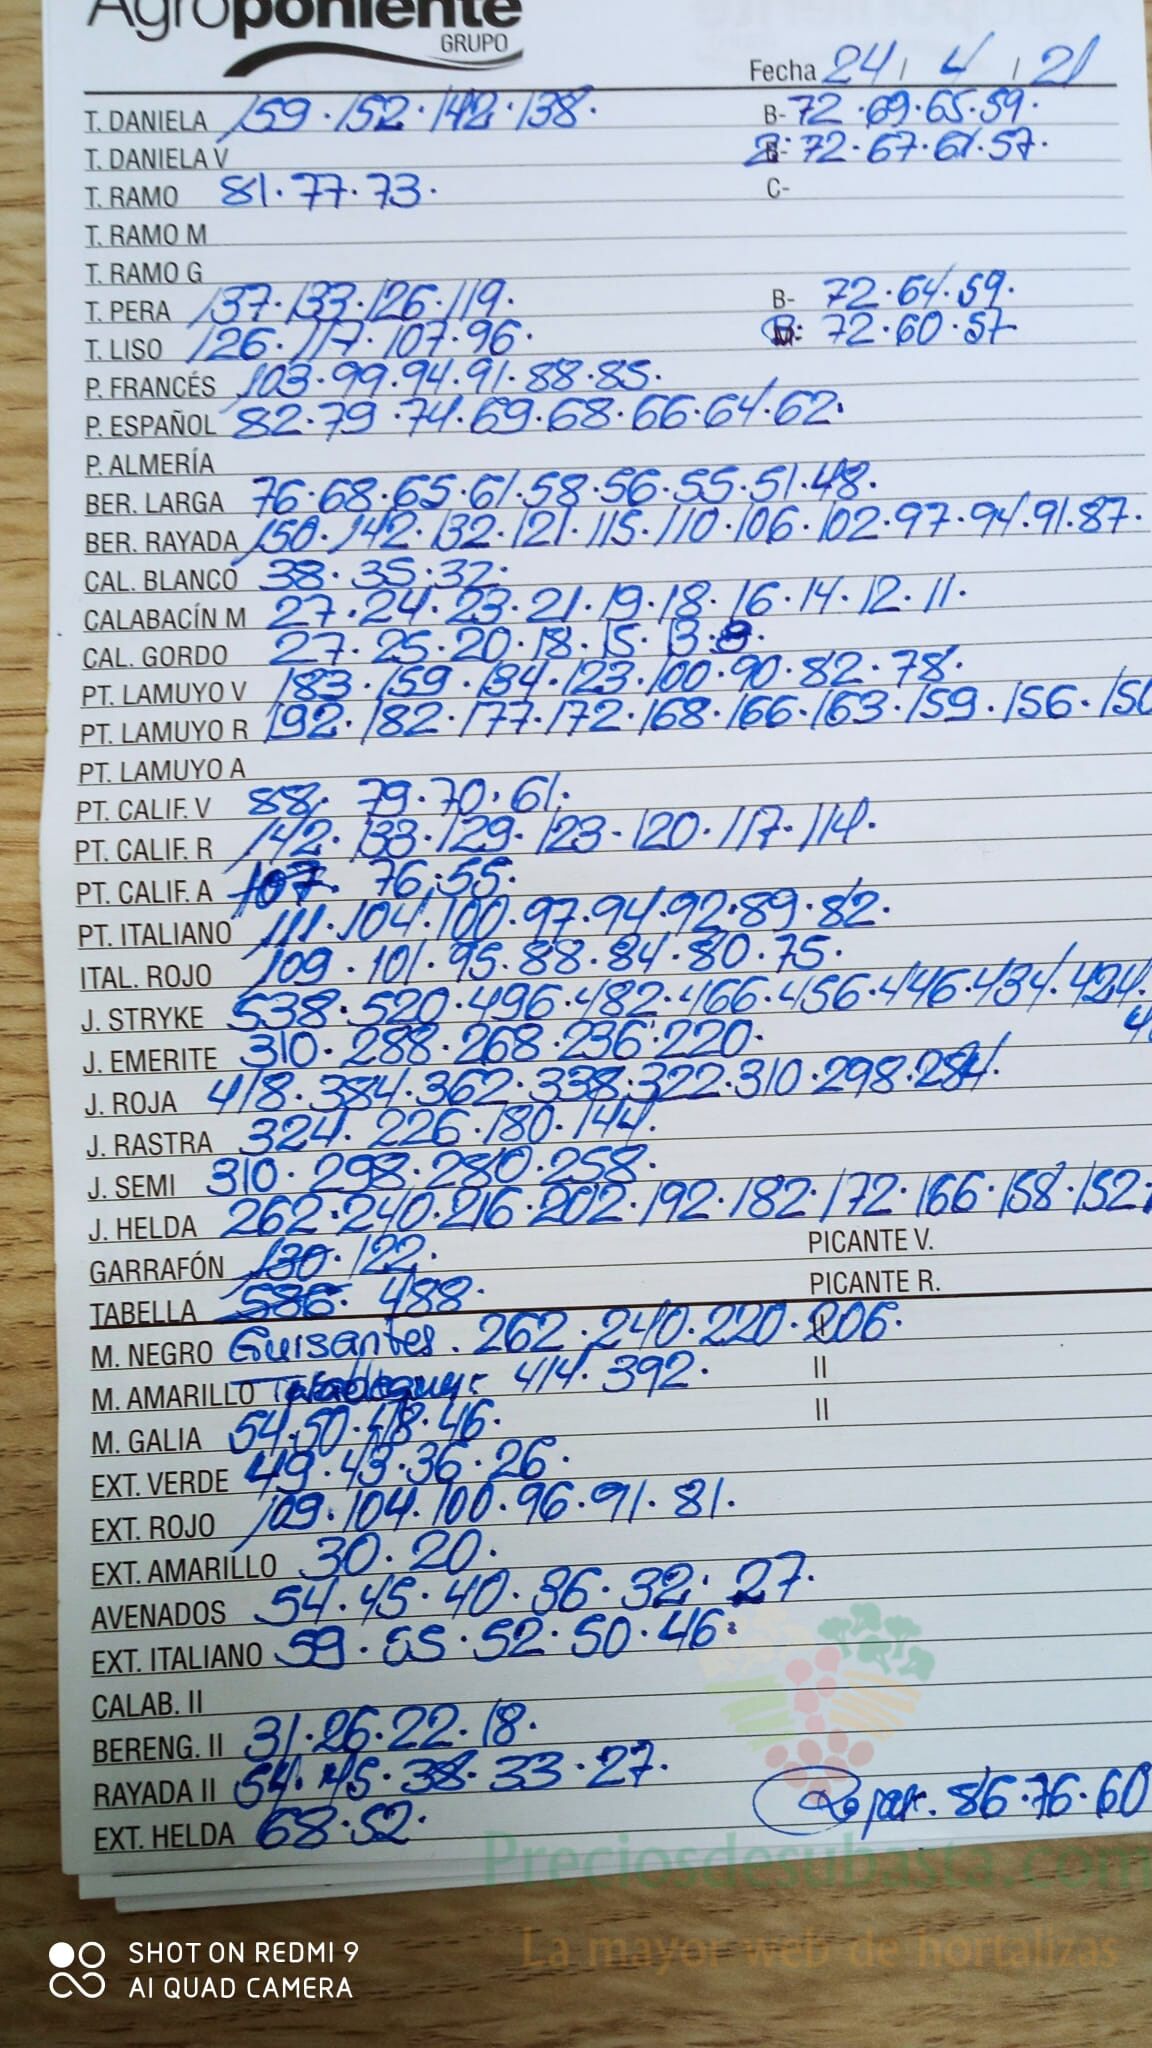 Agroponiente
GRUPO
Fecha 24 / 4 / 21
T. DANIELA 159·152·142·138· B- 72·69·65·59·
T. DANIELA V 72·67·61·57·
T. RAMO 81·77·73· C-
T. RAMO M
T. RAMO G
T. PERA 137·133·126·119· B- 72·64·59·
T. LISO 126·117·107·96· 72·60·57
P. FRANCÉS 103·99·94·91·88·85·
P. ESPAÑOL 82·79·74·69·68·66·64·62·
P. ALMERÍA
BER. LARGA 76·68·65·61·58·56·55·51·48·
BER. RAYADA 150·142·132·121·115·110·106·102·97·94·91·87·
CAL. BLANCO 38·35·32·
CALABACÍN M 27·24·23·21·19·18·16·14·12·11·
CAL. GORDO 27·25·20·18·15·13·9·
PT. LAMUYO V 183·159·134·123·100·90·82·78·
PT. LAMUYO R 192·182·177·172·168·166·163·159·156·150
PT. LAMUYO A
PT. CALIF. V 88·79·70·61·
PT. CALIF. R 142·133·129·123-120·117·114·
PT. CALIF. A 107·76·55·
PT. ITALIANO 111·104·100·97·94·92·89·82·
ITAL. ROJO 109·101·95·88·84·80·75·
J. STRYKE 538·520·496·482·466·456·446·434·424·
J. EMERITE 310·288·268·236·220·
J. ROJA 418·384·362·338·322·310·298·284·
J. RASTRA 324·226·180·144·
J. SEMI 310·298·280·258·
J. HELDA 262·240·216·202·192·182·172·166·158·152·
GARRAFÓN 130·122· PICANTE V.
TABELLA 536·488· PICANTE R.
M. NEGRO Guisantes. 262·240·220·206· II
M. AMARILLO 414·392· II
M. GALIA 54·50·48·46· II
EXT. VERDE 49·43·36·26·
EXT. ROJO 109·104·100·96·91·81·
EXT. AMARILLO 30·20·
AVENADOS 54·45·40·36·32·27·
EXT. ITALIANO 59·55·52·50·46·
CALAB. II
BERENG. II 31·26·22·18·
RAYADA II 54·45·38·33·27·
EXT. HELDA 68·52· 86·76·60
Preciosdesubasta.com
La mayor web de hortalizas
SHOT ON REDMI 9
AI QUAD CAMERA